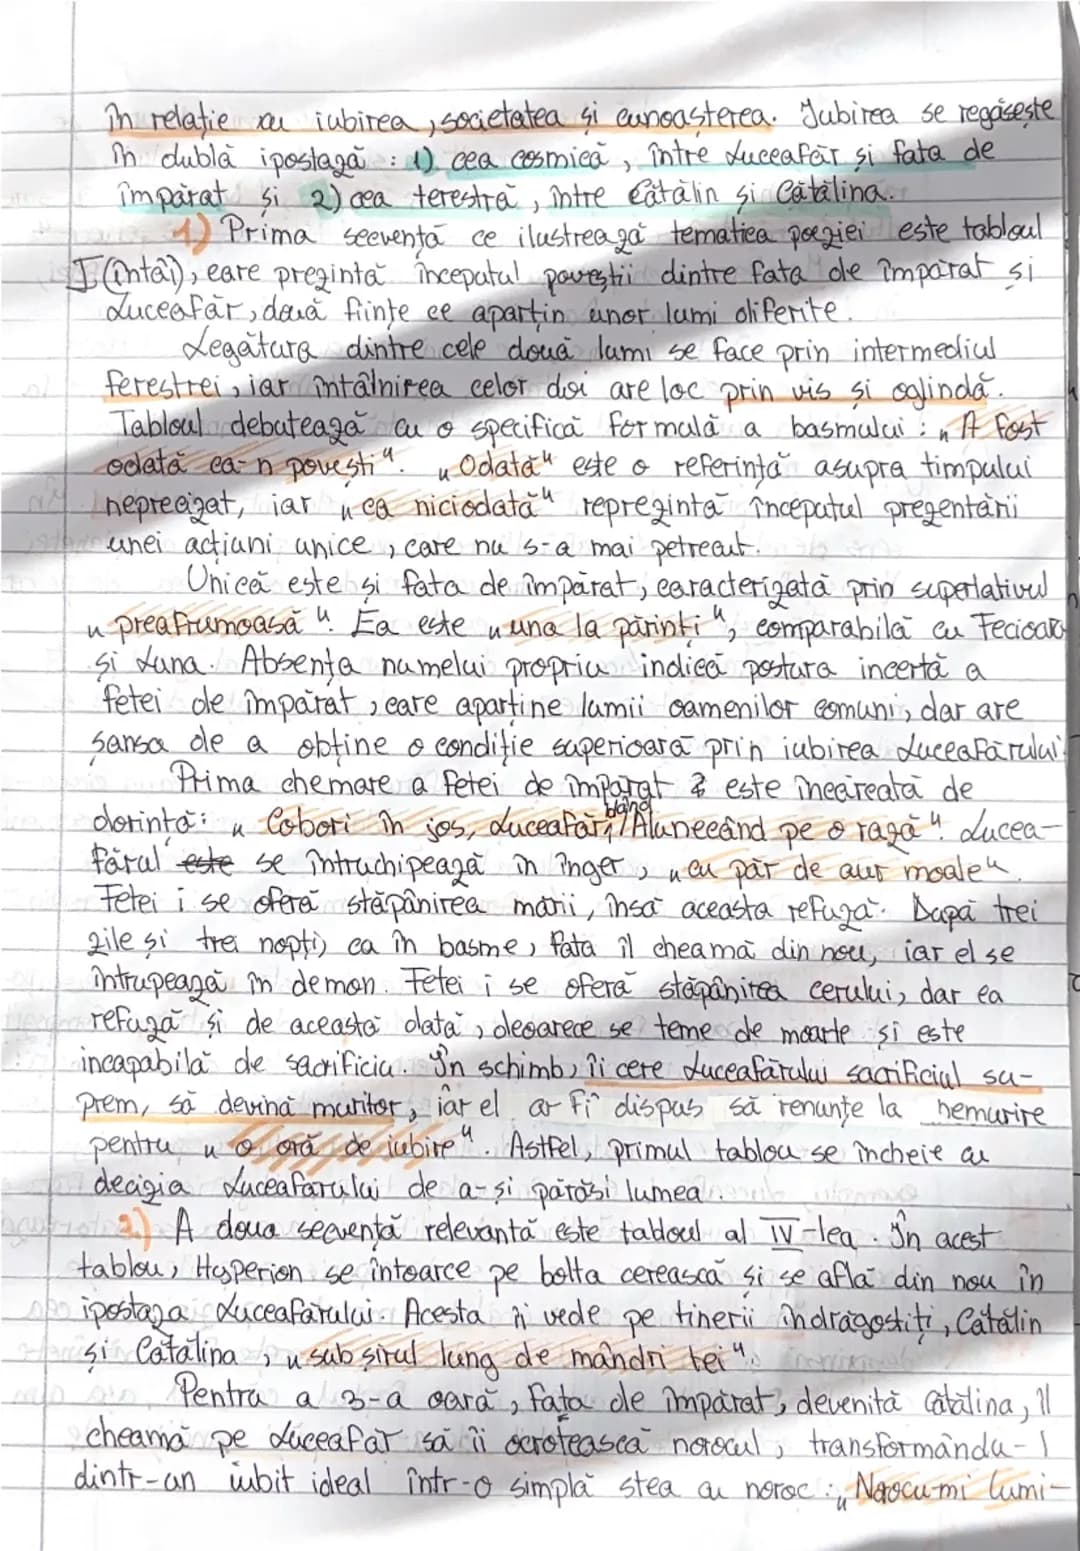 în relație cu iubirea, societatea și cunoașterea. Iubirea se regăsește
în dublă ipostază : 1) cea cosmică, între Luceafăr și fata de
împărat și 2) cea terestră, între Cătălin și Cătălina.
1) Prima secvență ce ilustrează tematica poeziei este tabloul
I (întâi), care prezintă începutul poveștii dintre fata de împărat și
Luceafăr, două ființe ce aparțin unor lumi diferite.
Legătura dintre cele două lumi se face prin intermediul
ferestrei, iar întâlnirea celor doi are loc prin vis și oglindă.
Tabloul debutează cu o specifică formulă a basmului : „A fost
odată ca-n povești". „Odată" este o referință asupra timpului
neprecizat, iar „ca niciodată" reprezintă începutul prezentării
unei acțiuni unice, care nu s-a mai petrecut.
Unică este și fata de împărat, caracterizată prin superlativul
„preafrumoasă". Ea este „una la părinți", comparabilă cu Fecioara
și Luna. Absența numelui propriu indică postura incertă a
fetei de împărat, care aparține lumii oamenilor comuni, dar are
șansa de a obține o condiție superioară prin iubirea Luceafărului.
Prima chemare a fetei de împărat este încărcată de
dorință: „Cobori în jos, Luceafăr blând,/Alunecând pe o rază". Lucea-
fărul este se întruchipează în înger, „cu păr de aur moale".
Fetei i se oferă stăpânirea mării, însă aceasta refuză. După trei
zile și trei nopți, ca în basme, fata îl cheamă din nou, iar el se
întrupează în demon. Fetei i se oferă stăpânirea cerului, dar ea
refuză și de această dată, deoarece se teme de moarte și este
incapabilă de sacrificiu. În schimb, îi cere Luceafărului sacrificiul su-
prem, să devină muritor, iar el ar fi dispus să renunțe la nemurire
pentru „o oră de iubire". Astfel, primul tablou se încheie cu
decizia Luceafărului de a-și părăsi lumea.
2.) A doua secvență relevantă este tabloul al IV-lea. În acest
tablou, Hyperion se întoarce pe bolta cerească și se află din nou în
ipostaza Luceafărului. Acesta îi vede pe tinerii îndrăgostiți, Cătălin
și Cătălina, „sub șirul lung de mândri tei".
Pentru a 3-a oară, fata de împărat, devenită Cătălina, îl
cheamă pe Luceafăr să îi ocrotească norocul, transformându-l
dintr-un iubit ideal într-o simplă stea cu noroc : „Norocu-mi lumi-